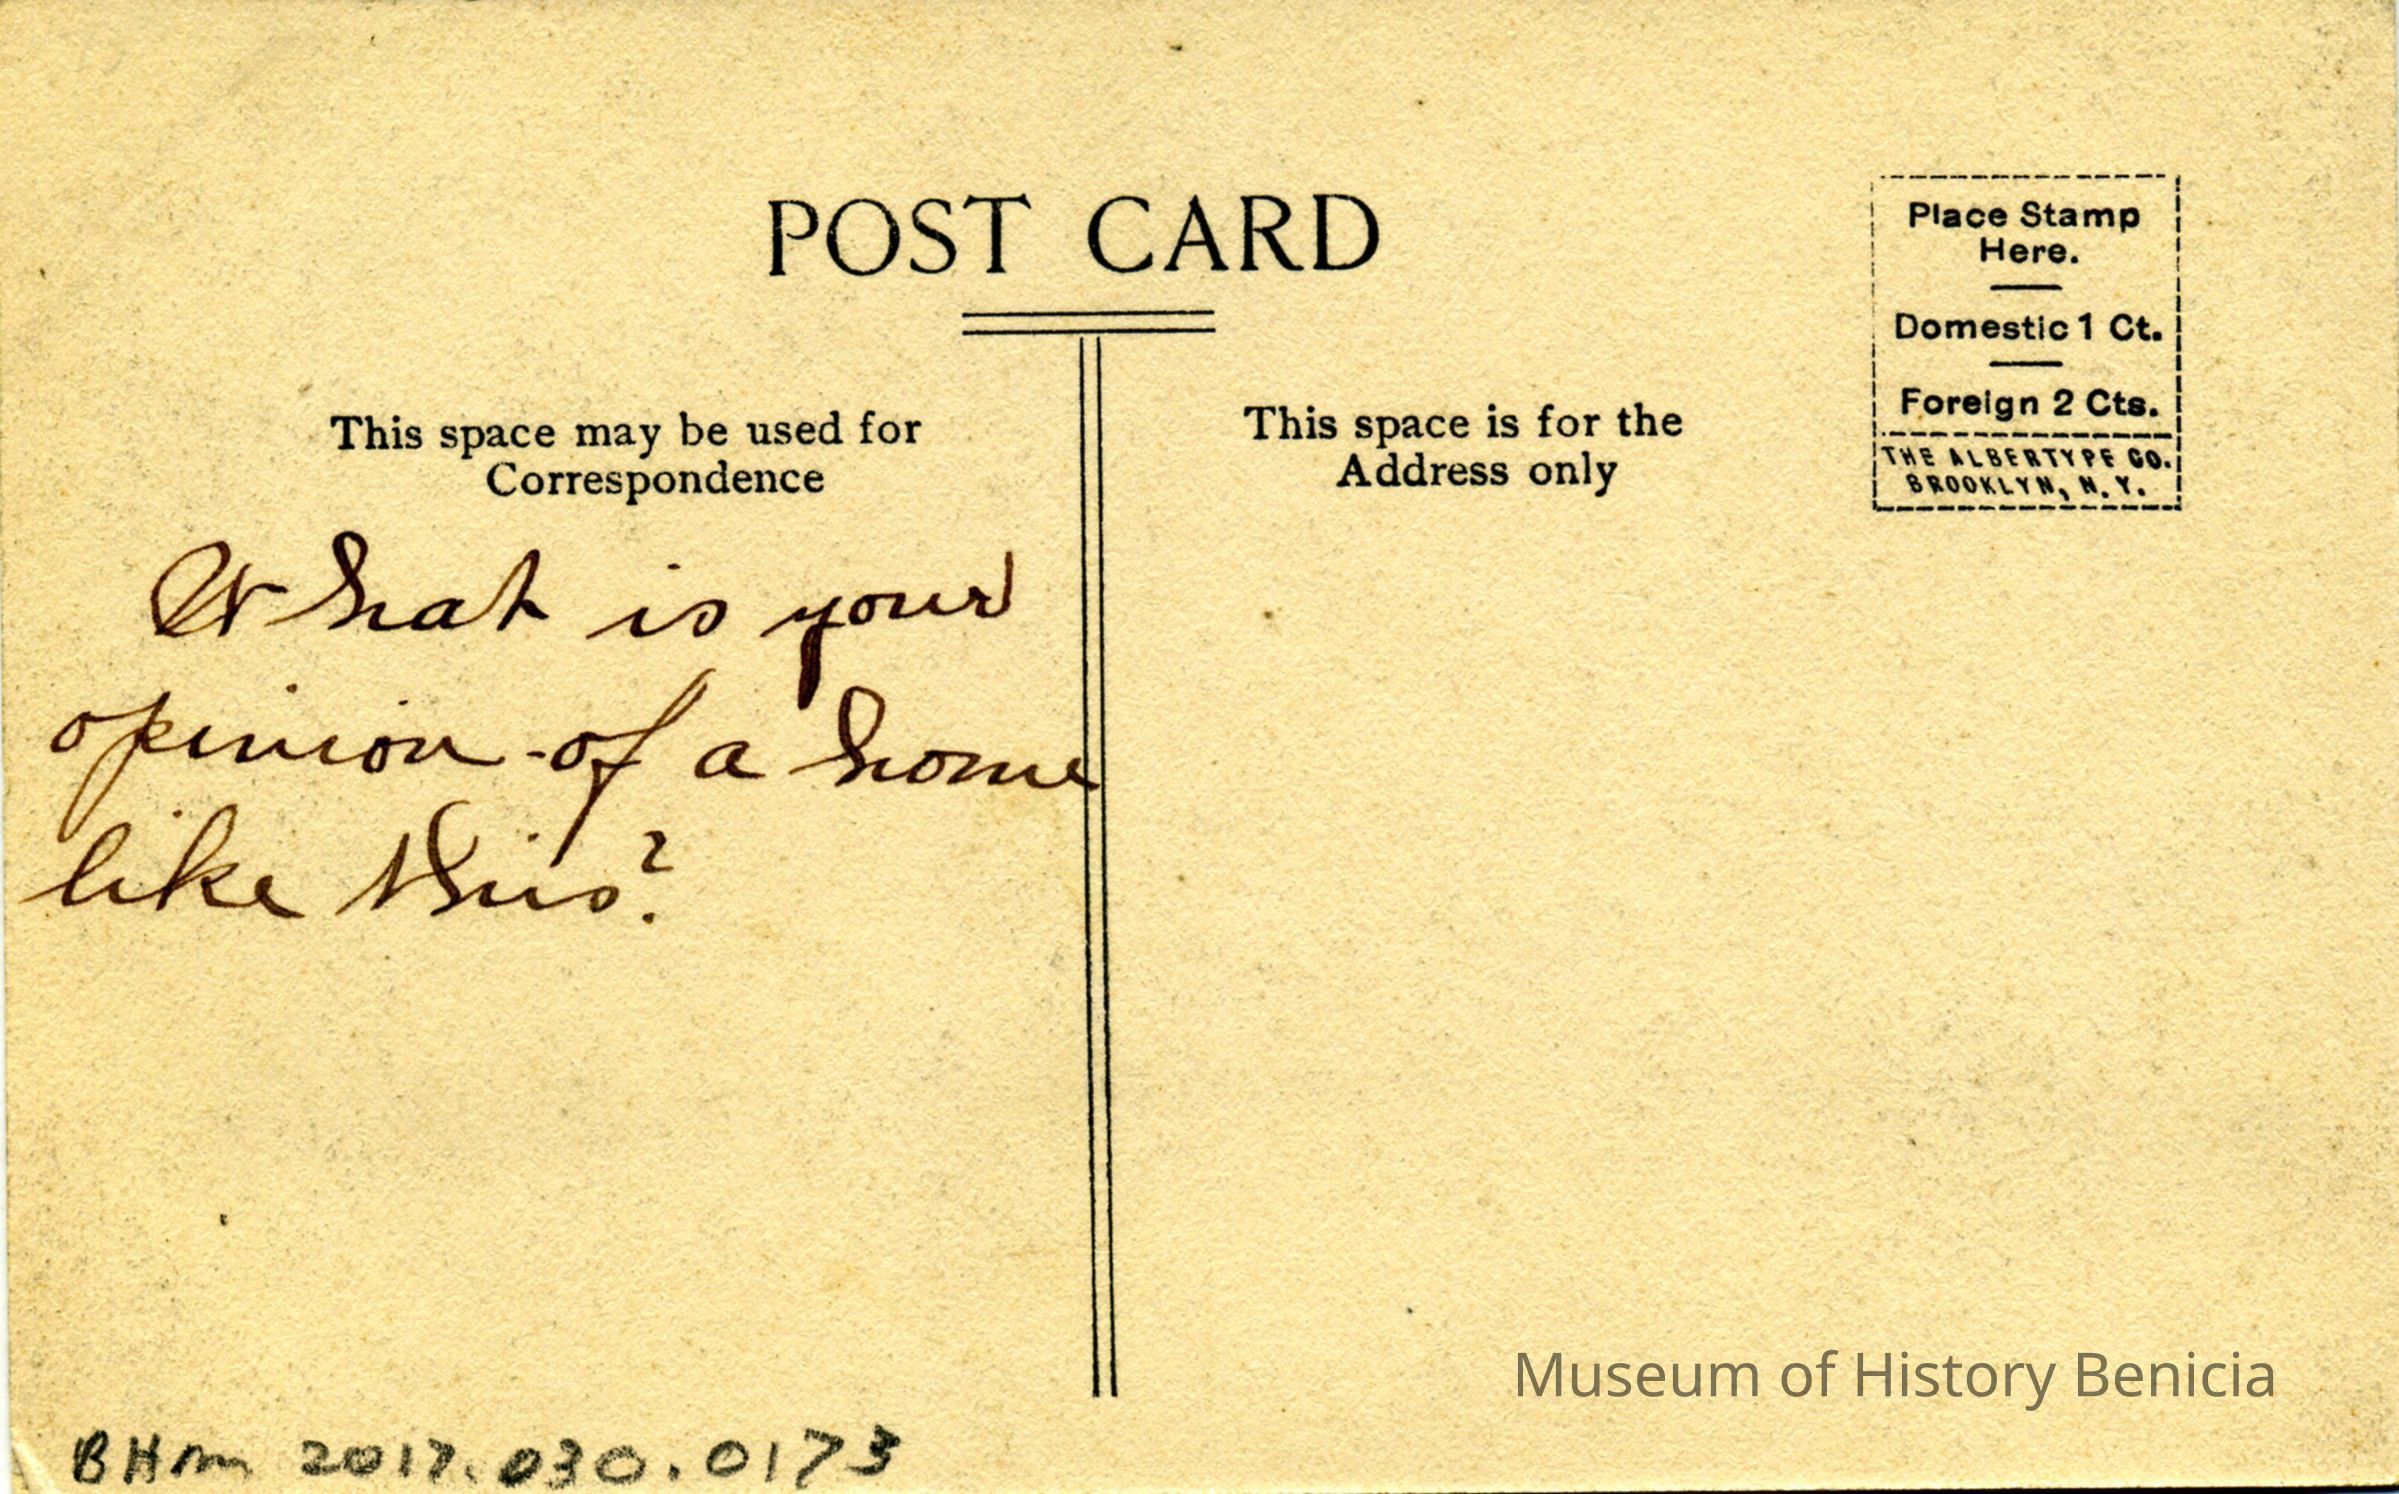 POST CARD
This space may be used for
Correspondence
This space is for the
Address only
Place Stamp
Here.
Domestic 1 Ct.
Foreign 2 Cts.
THE ALBERTYPE CO.
BROOKLYN, N.Y.
What is your
opinion of a home
like this?
Museum of History Benicia
BHM 2017.030.0173